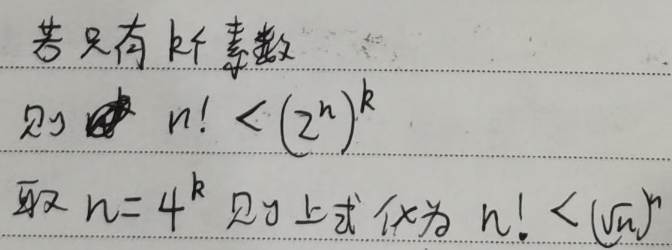 若只有k个素数
则 n! < (2ⁿ)ᵏ
取 n = 4ᵏ 则上式化为 n! < (√n)ⁿ